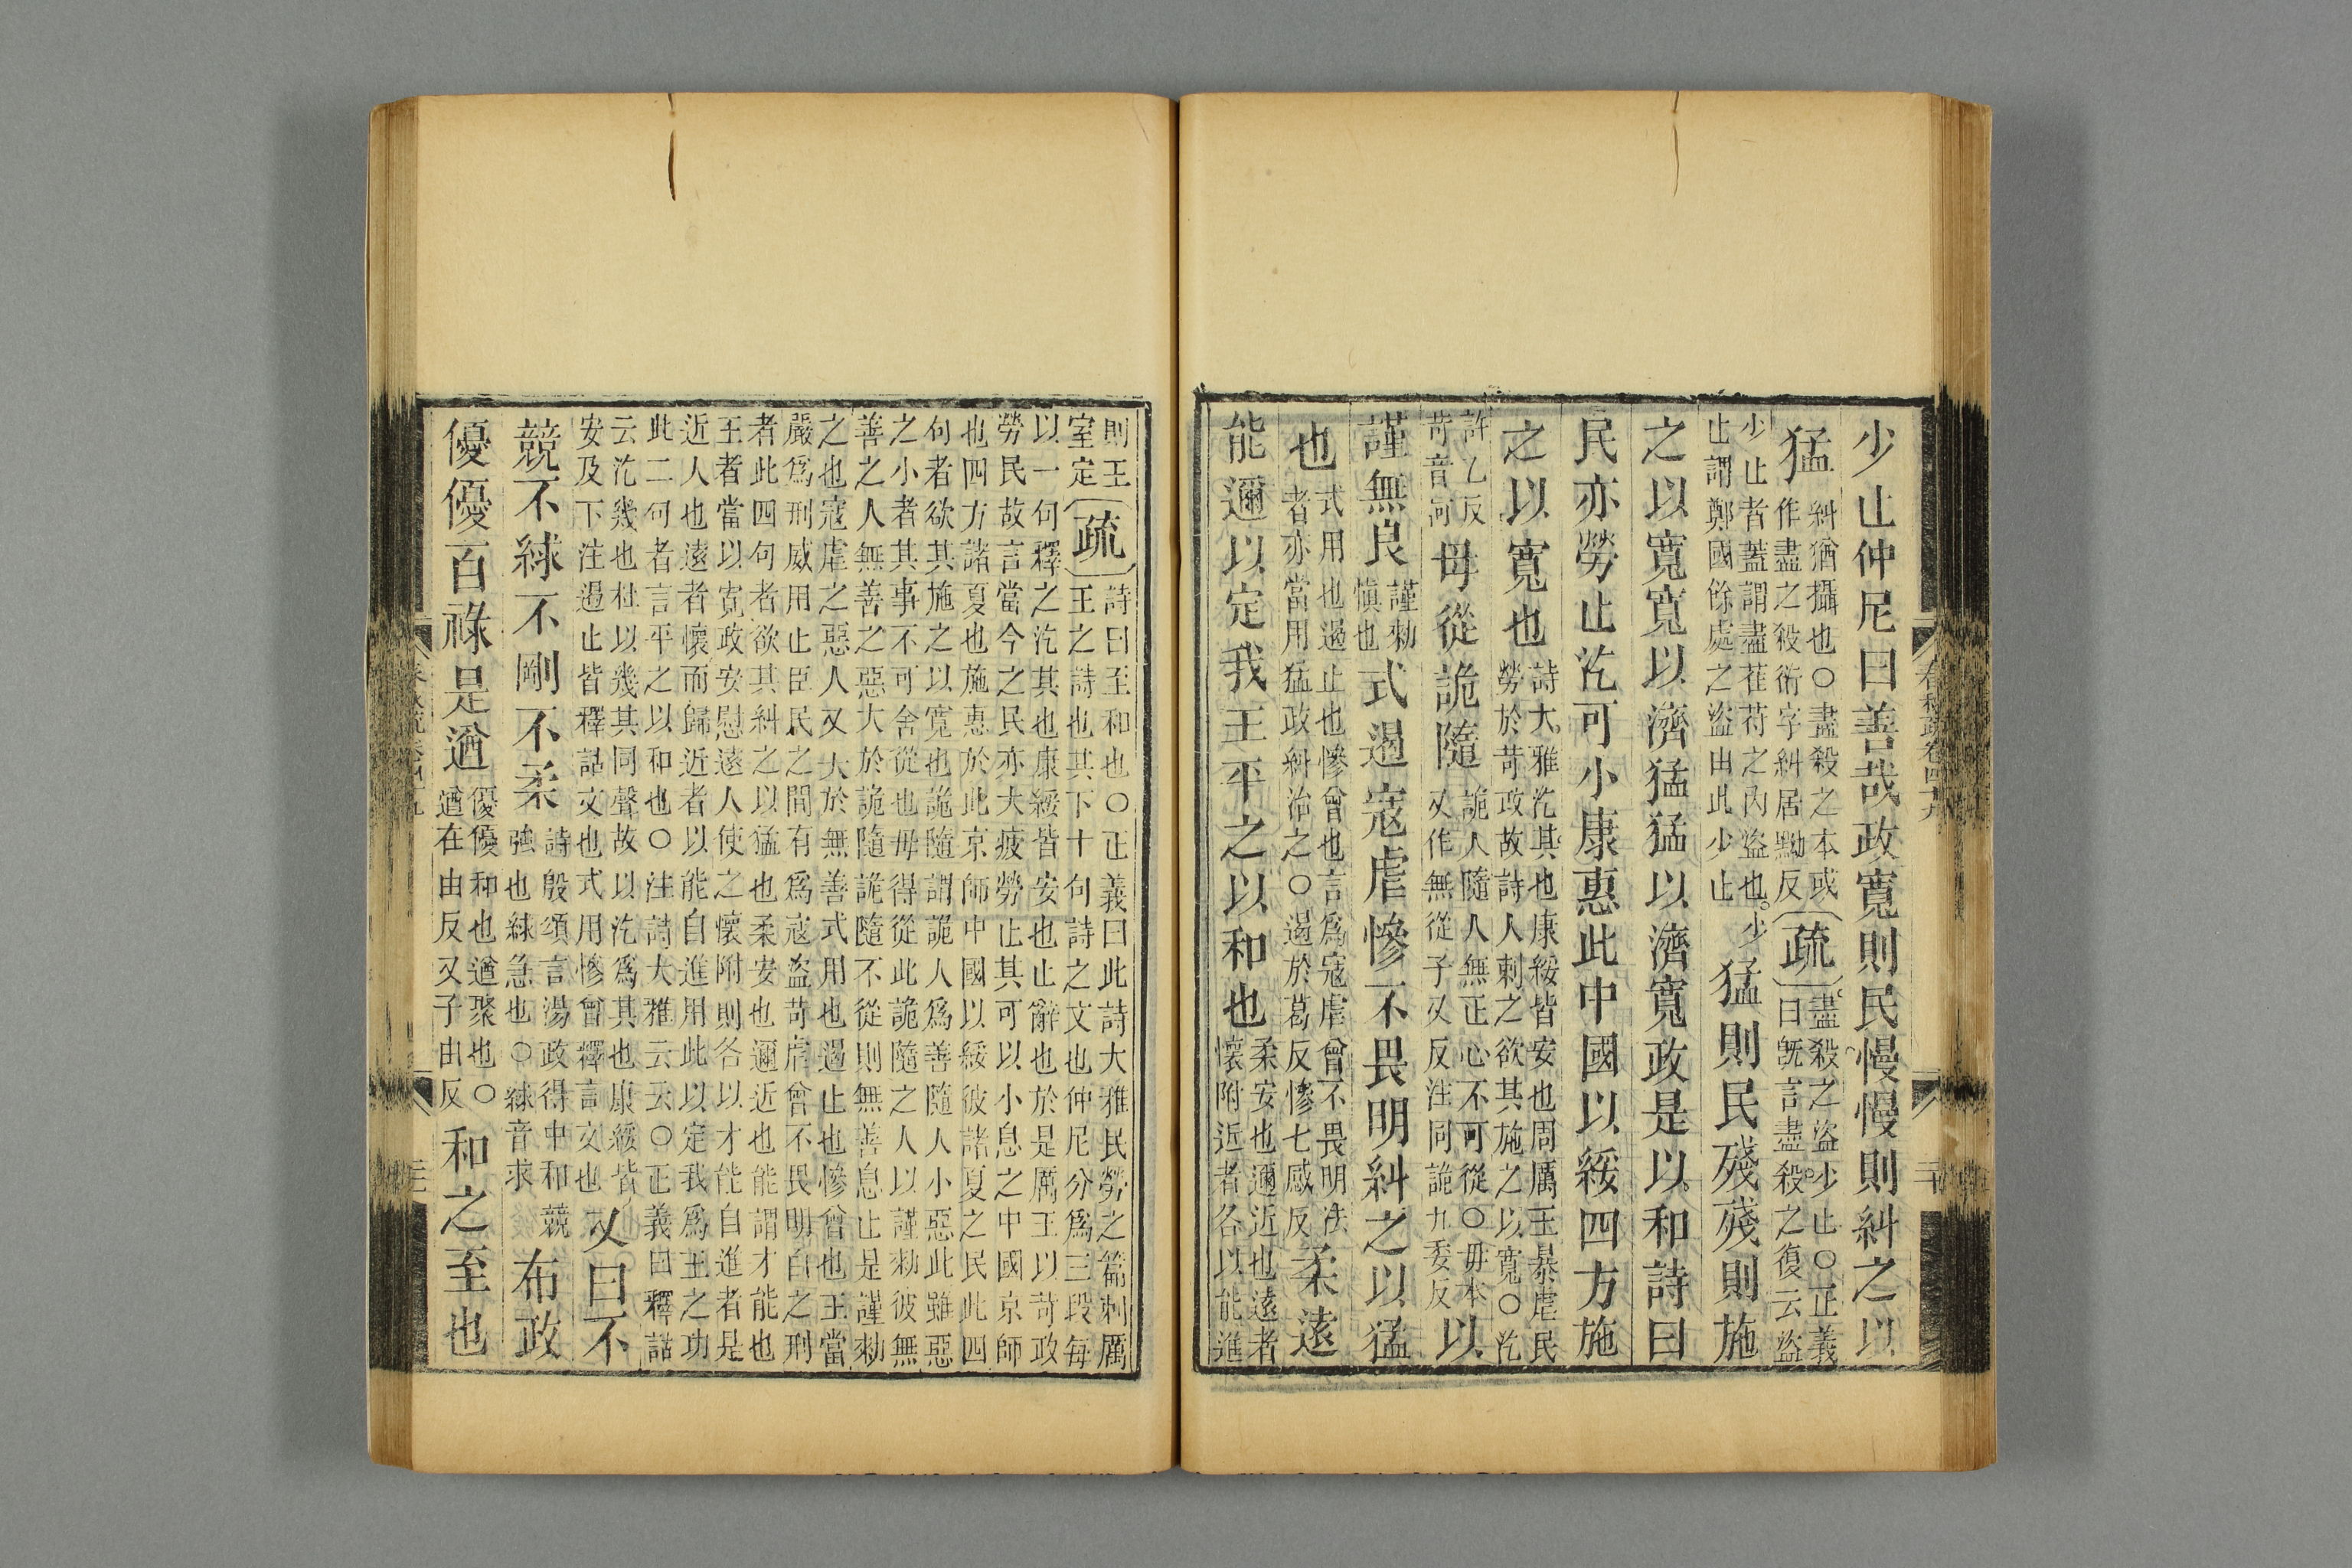 少止仲尼曰善哉政寬則民慢慢則糾之以
猛糾猶攝也○盡殺之本或作盡之殺衍字糾居黝反疏盡殺之盜少止○正義曰旣言盡殺之復云盜
少止者蓋謂盡萑苻之內盜也少止謂鄭國餘處之盜由此少止猛則民殘殘則施
之以寬寬以濟猛猛以濟寬政是以和詩曰
民亦勞止汔可小康惠此中國以綏四方施
之以寬也詩大雅汔其也康綏皆安也周厲王暴虐民勞於苛政故詩人刺之欲其施之以寬○汔
許乙反苛音河毋從詭隨詭人隨人無正心不可從○毋本又作無從子又反注同詭九委反以
謹無良謹勑愼也式遏寇虐慘不畏明糾之以猛
也式用也遏止也慘曾也言爲寇虐曾不畏明法者亦當用猛政糾治之○遏於葛反慘七感反柔遠
能邇以定我王平之以和也柔安也邇近也遠者懷附近者各以能進
則王室定疏詩曰至和也○正義曰此詩大雅民勞之篇刺厲王之詩也其下十句詩之文也仲尼分爲三段每
以一句釋之汔其也康綏皆安也止辭也於是厲王以苛政勞民故言當今之民亦大疲勞止其可以小息之中國京師
也四方諸夏也施惠於此京師中國以綏彼諸夏之民此四句者欲其施之以寬也詭隨謂詭人爲善隨人小惡此雖惡
之小者其事不可舍從也毋得從此詭隨之人以謹勑彼無善之人無善之惡大於詭隨詭隨不從則無善息止是謹勑
之也寇虐之惡人又大於無善式用也遏止也慘曾也王當嚴爲刑威用止臣民之間有爲寇盜苛虐曾不畏明白之刑
者此四句者欲其糾之以猛也柔安也邇近也能謂才能也王者當以寬政安慰遠人使之懷附則各以才能自進者是
近人也遠者懷而歸近者以能自進用此以定我爲王之功此二句者言平之以和也○注詩大雅云云○正義曰釋詁
云汔幾也杜以幾其同聲故以汔爲其也康綏皆安及下注遏止皆釋詁文也式用慘曾釋言文也又曰不
競不絿不剛不柔詩殷頌言湯政得中和競強也絿急也○絿音求布政
優優百祿是遒優優和也遒聚也○遒在由反又子由反和之至也